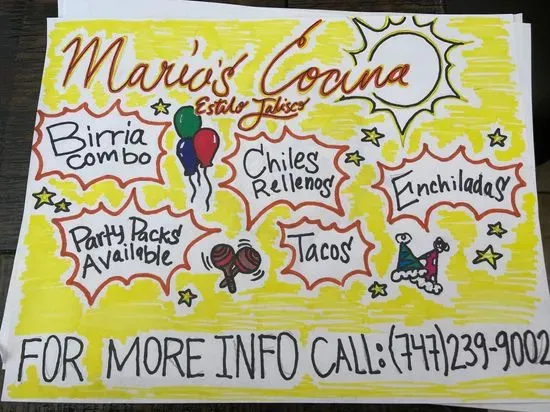 Maria's Cocina
Estilo Jalisco
Birria
combo
Chiles
Rellenos
Enchiladas
Party Packs
Available
Tacos
FOR MORE INFO CALL:(747)239-9002